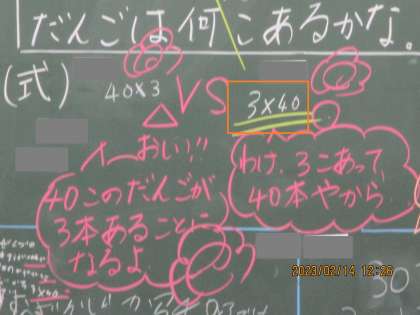 だんごは何こあるかな。
(式)
40×3
VS
3×40
おい!!!
40このだんごが
3本あることに
なるよ
わけ、3こあって
40本やから
2023/02/14 12:26
30